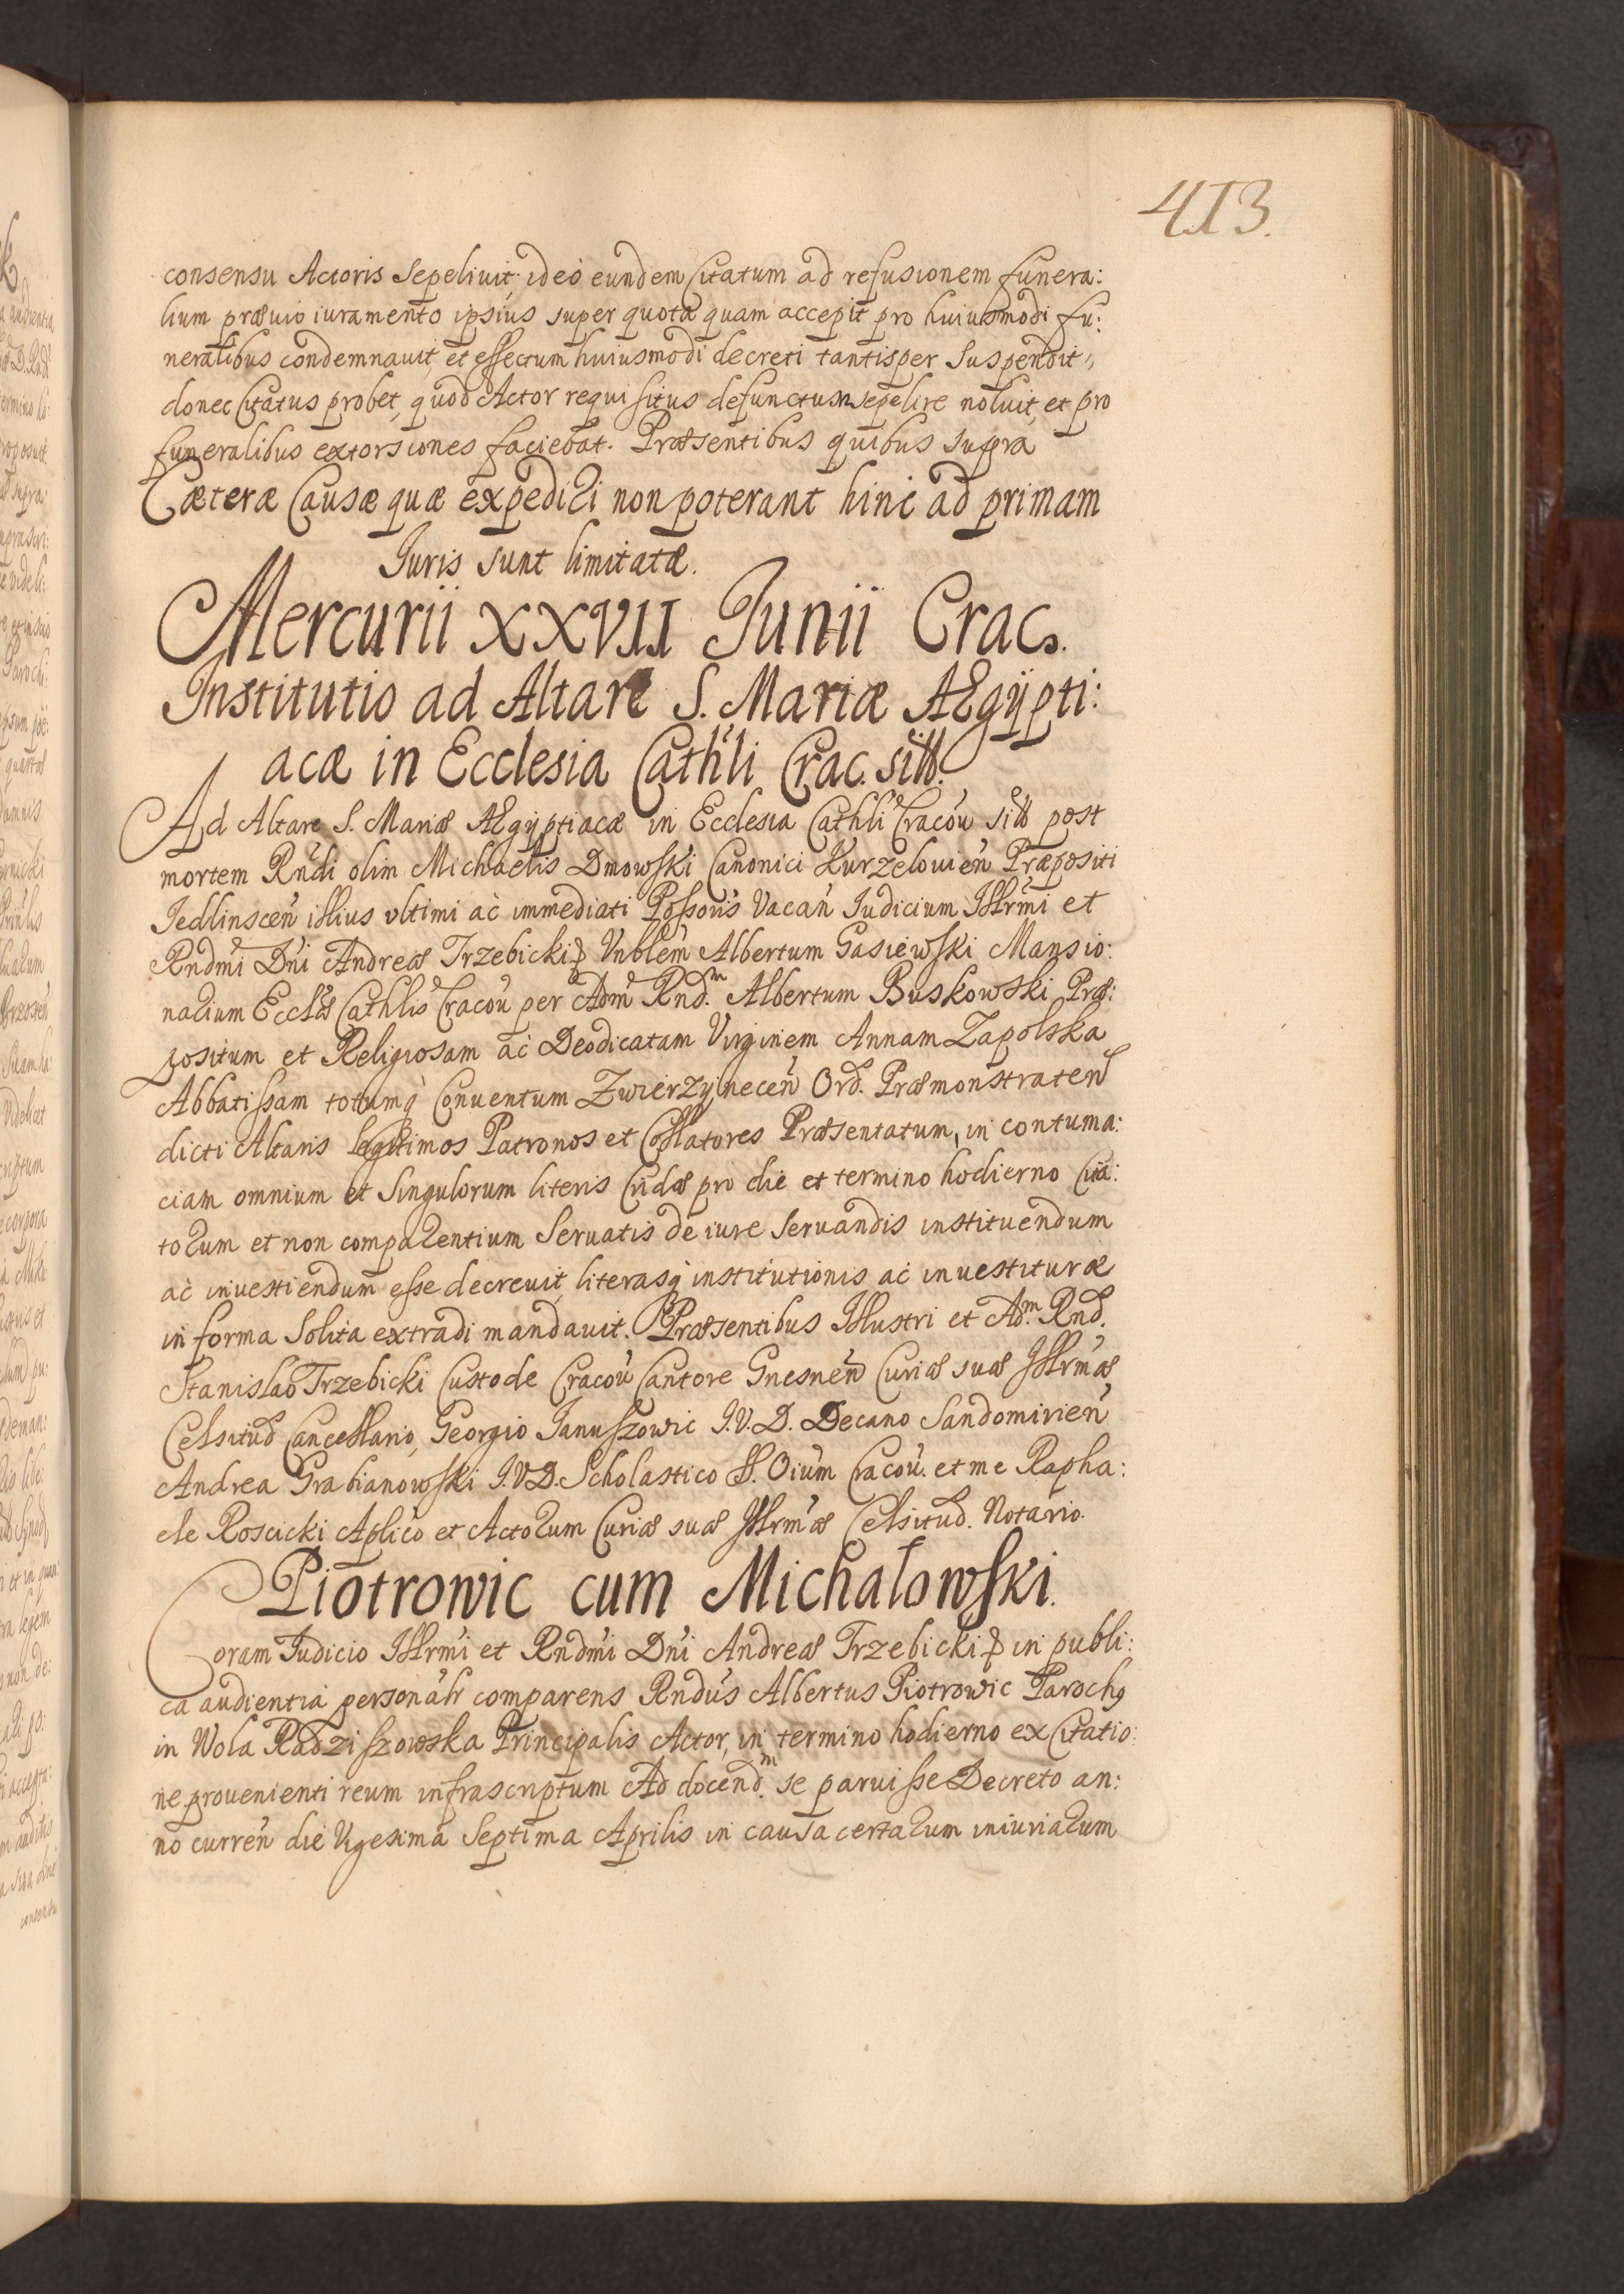 413.
consensu Actoris sepeliuit, ideo eundem Citatum ad refusionem funera:
lium præuio iuramento ipsius super quota quam accepit pro huiusmodi fu:
neralibus condemnauit, et effectum huiusmodi decreti tantisper suspendit,
donec Citatus probet, quod Actor requisitus defunctum sepelire noluit, et pro
funeralibus extorsiones faciebat. Præsentibus quibus supra
Cæteræ Causæ quæ expediri non poterant hinc ad primam
Iuris sunt limitatæ.
Mercurii XXVII Junii Crac.
Institutio ad Altare S. Mariæ AEgÿpti:
acæ in Ecclesia Cathli Crac. sitt.
Ad Altare S. Mariæ AEgÿptiacæ in Ecclesia Cathli Cracou sitt post
mortem Rndi olim Michaelis Dmowski Canonici Kurzelouien Præpositi
Jedlinscen illius vltimi ac immediati Possoris Vacan Iudicium Illrmi et
Rndmi Dni Andreæ Trzebicki & Vnblem Albertum Gasiewski Mansio:
narium Eccliæ Cathlis Cracou per Adm Rnd.m Albertum Buskowski Præ:
positum et Religiosam ac Deodicatam Virginem Annam Zapolska
Abbatissam totumq Conuentum Zwierzÿnecen Ord. Præmonstraten
dicti Altaris legitimos Patronos et Collatores Præsentatum, in contuma:
ciam omnium et singulorum literis Cridæ pro die et termino hodierno Cita:
torum et non comparentium seruatis de iure seruandis instituendum
ac inuestiendum esse decreuit, literasq institutionis ac inuestituræ
in forma solita extradi mandauit. Præsentibus Illustri et Ad.m Rnd.
Stanislao Trzebicki Custode Cracou Cantore Gnesnen Curiæ suæ Illrmæ
Celsitud Cancellario, Georgio Januszowic J.V.D. Decano Sandomirien
Andrea Grabianowski J.VD. Scholastico SS. Oium Cracou. et me Rapha:
ele Roscicki Aplico et Actorum Curiæ suæ Illrmæ Celsitud. Notario.
Piotrowic cum Michałowski.
Coram Iudicio Illrmi et Rndmi Dni Andreæ Trzebicki & in publi:
ca audientia personalr comparens Rndus Albertus Piotrowic Parochꝯ
in Wola Radziszowska Principalis Actor, in termino hodierno ex Citatio:
ne prouenienti reum infrascriptum Ad docend.m se paruisse Decreto an:
no curren die Vigesima Septima Aprilis in causa certarum iniuriarum